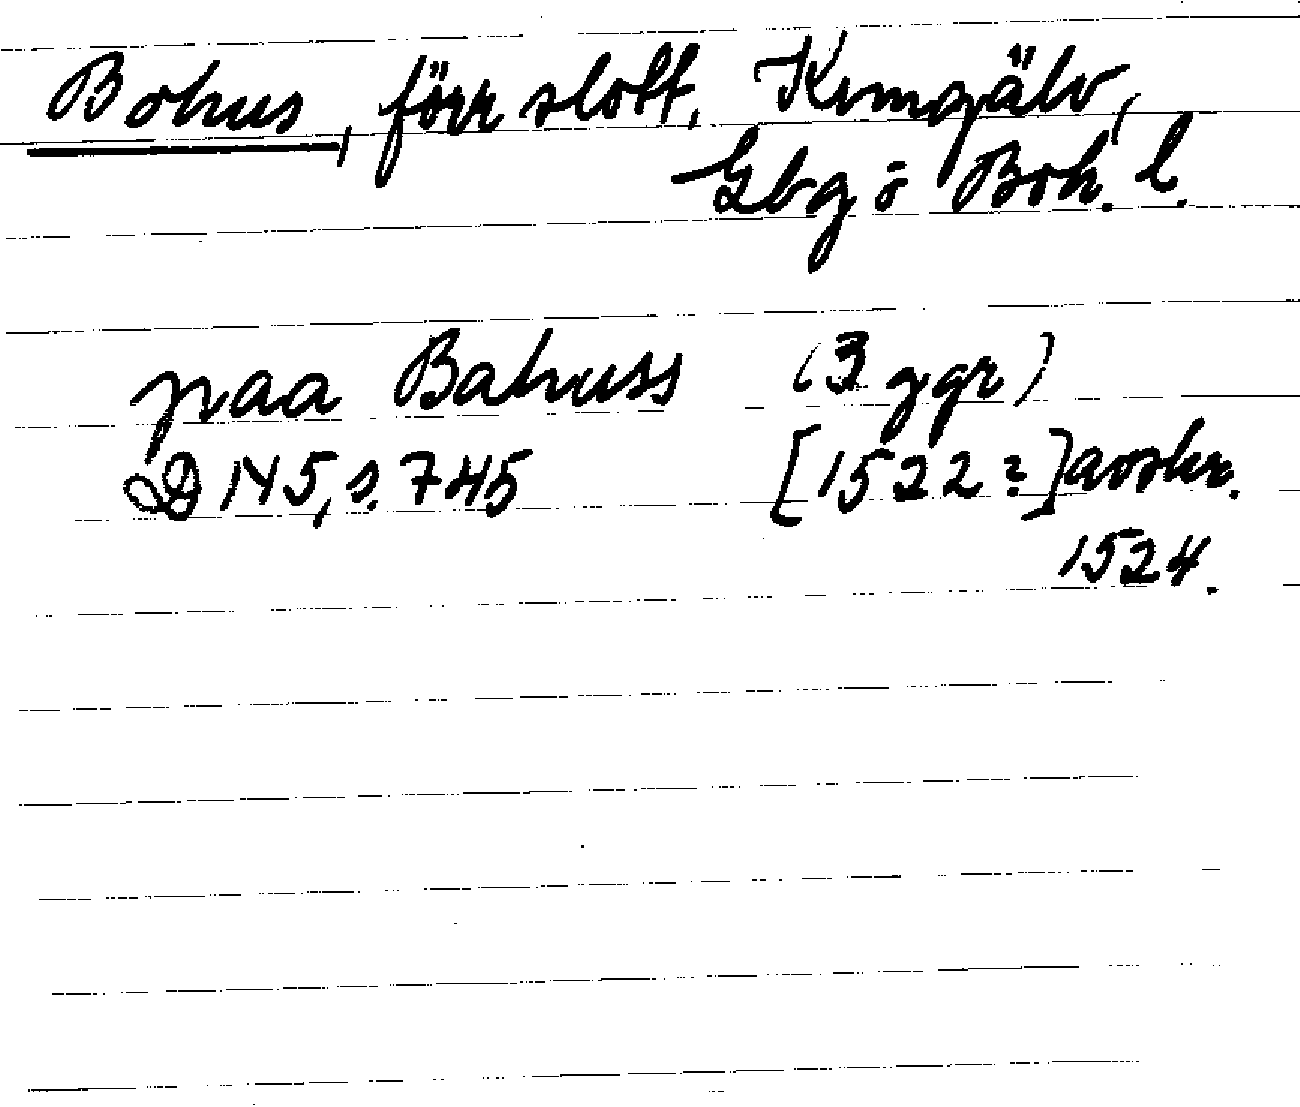 Bohus, förr slott, Kungälv,
Gbg o Boh. l.
paa Bahuss (3 ggr)
D 145, s. 745 [1522?] avskr.
1524.